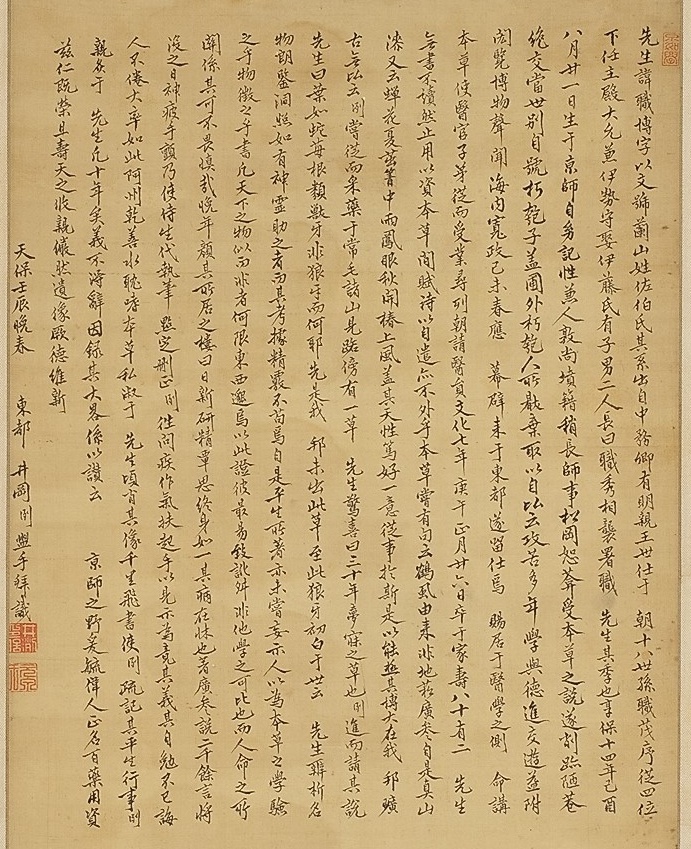 先生諱職博字以文號蘭山姓佐伯氏其系出自中務卿有明親王世仕于 朝十八世孫職茂序從四位
下任主殿大允兼伊勢守娶伊藤氏有子男二人長曰職秀相襲署職 先生其季也享保十四年己酉
八月廿一日生于京師自幼記性兼人敦尚墳籍稍長師事松岡恕菴受本草之說遂剳跡陋巷
絕交當世別自號朽匏子蓋圃外朽匏人所厭棄取以自以云攻苦多年學與德進交遊益附
閎覽博物聲聞海內寬政己未春應 幕辟來于東都遂留仕焉 賜居于醫學之側 命講
本草使醫官子弟從而受業尋列朝請醫員文化七年庚午正月廿六日卒于家壽八十有二 先生
無書不讀然止用以資本草間賦詩以自遣亦不外乎本草嘗有句云鶴虱由來非地菘廣參自是真山
漆又云蟬花夏蛰箐中雨鳳眼秋開椿上風蓋其天性篤好一意從事於斯是以能極其博大在我 邦曠
古無以云 嘗從而采藥于常毛諸山見路傍有一草 先生驚喜曰三十年夢寐之草也 進而請其說
先生曰葉如蛇莓根類獸牙非狼牙而何邪先是我 邦未出此草至此狼牙初白于世云 先生辨析名
物朗鑒洞照如有神靈助之者而其考據精覈不苟焉自是平生所著亦未嘗妄示人以為本草之學驗
之乎物徵之乎書凡天下之物似而非者何限東西邈焉以此證彼最易致訛舛非他學之可比也而人命之所
關係其可不畏慎哉晚年顏其所居之樓曰日新研精覃思終身如一其病在牀也著廣參說二千餘言將
沒之日神疲手顫乃使侍生代執筆 定刪正 往問疾作氣扶起手以見示蓋竟其義其自勉不已誨
人不倦大率如此阿州乾善水耽嗜本草私淑于 先生頃肖其像千里飛書使 疏記其平生行事
親炙于 先生凡十年矣義不得辭因錄其大畧係以讚云 京師之野爰毓偉人正名百藥用資
茲仁既榮且壽天之所親儼然遺像厥德維新
天保壬辰晚春 東都 井岡 盥手拜識